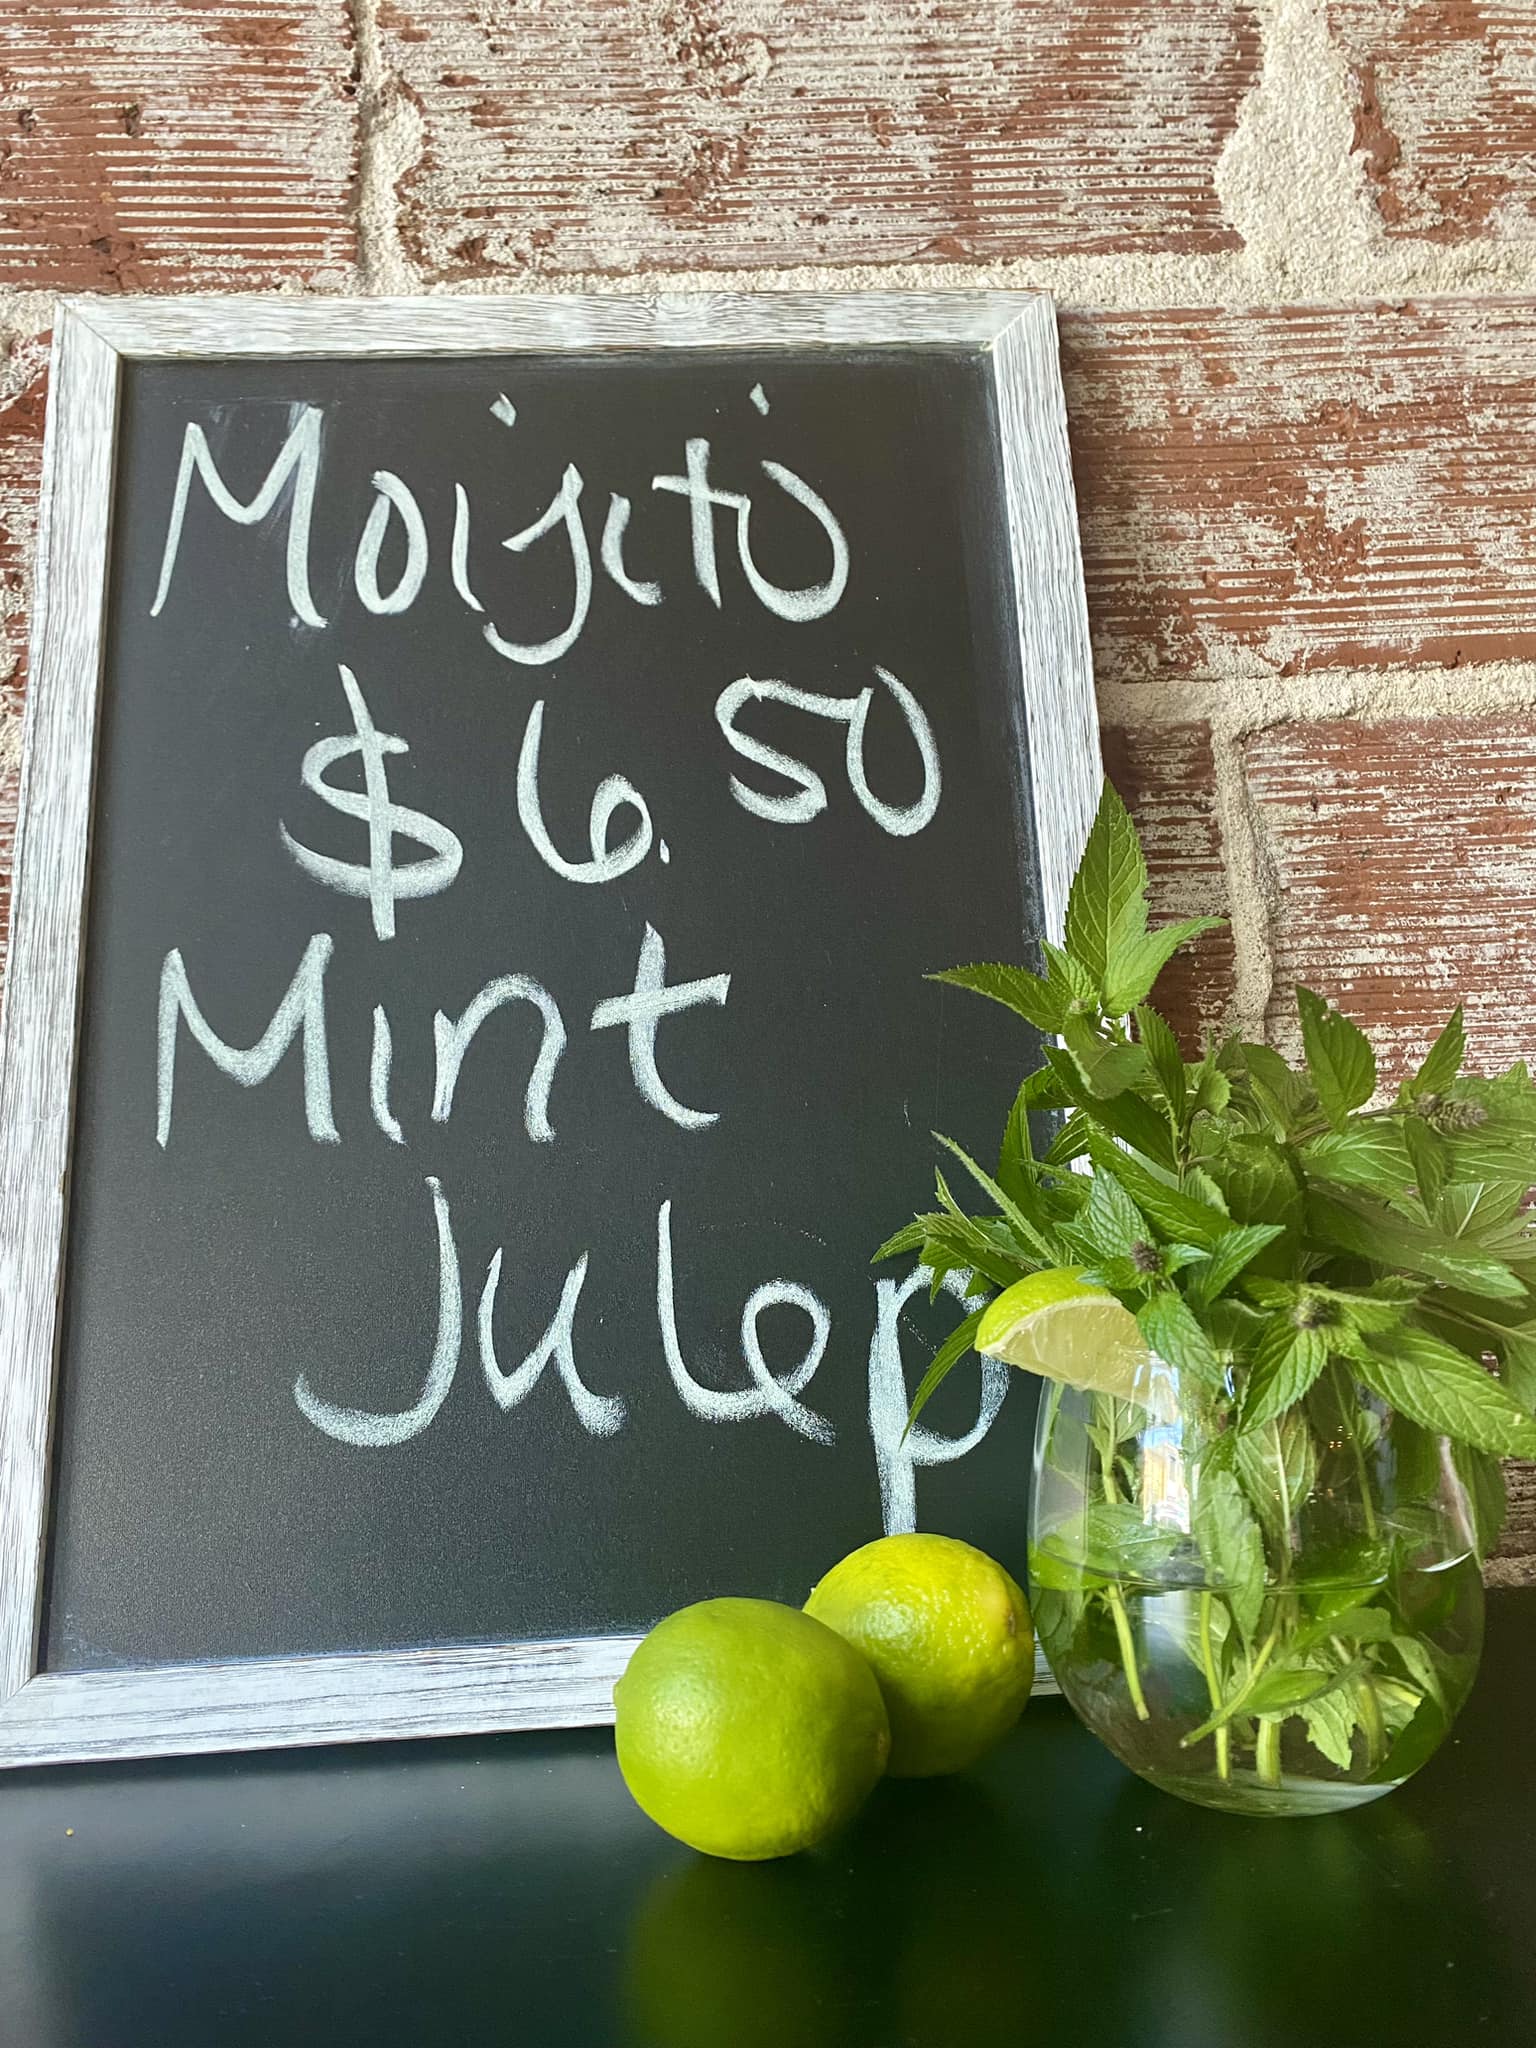 Moijito
$6.50
Mint
Julep